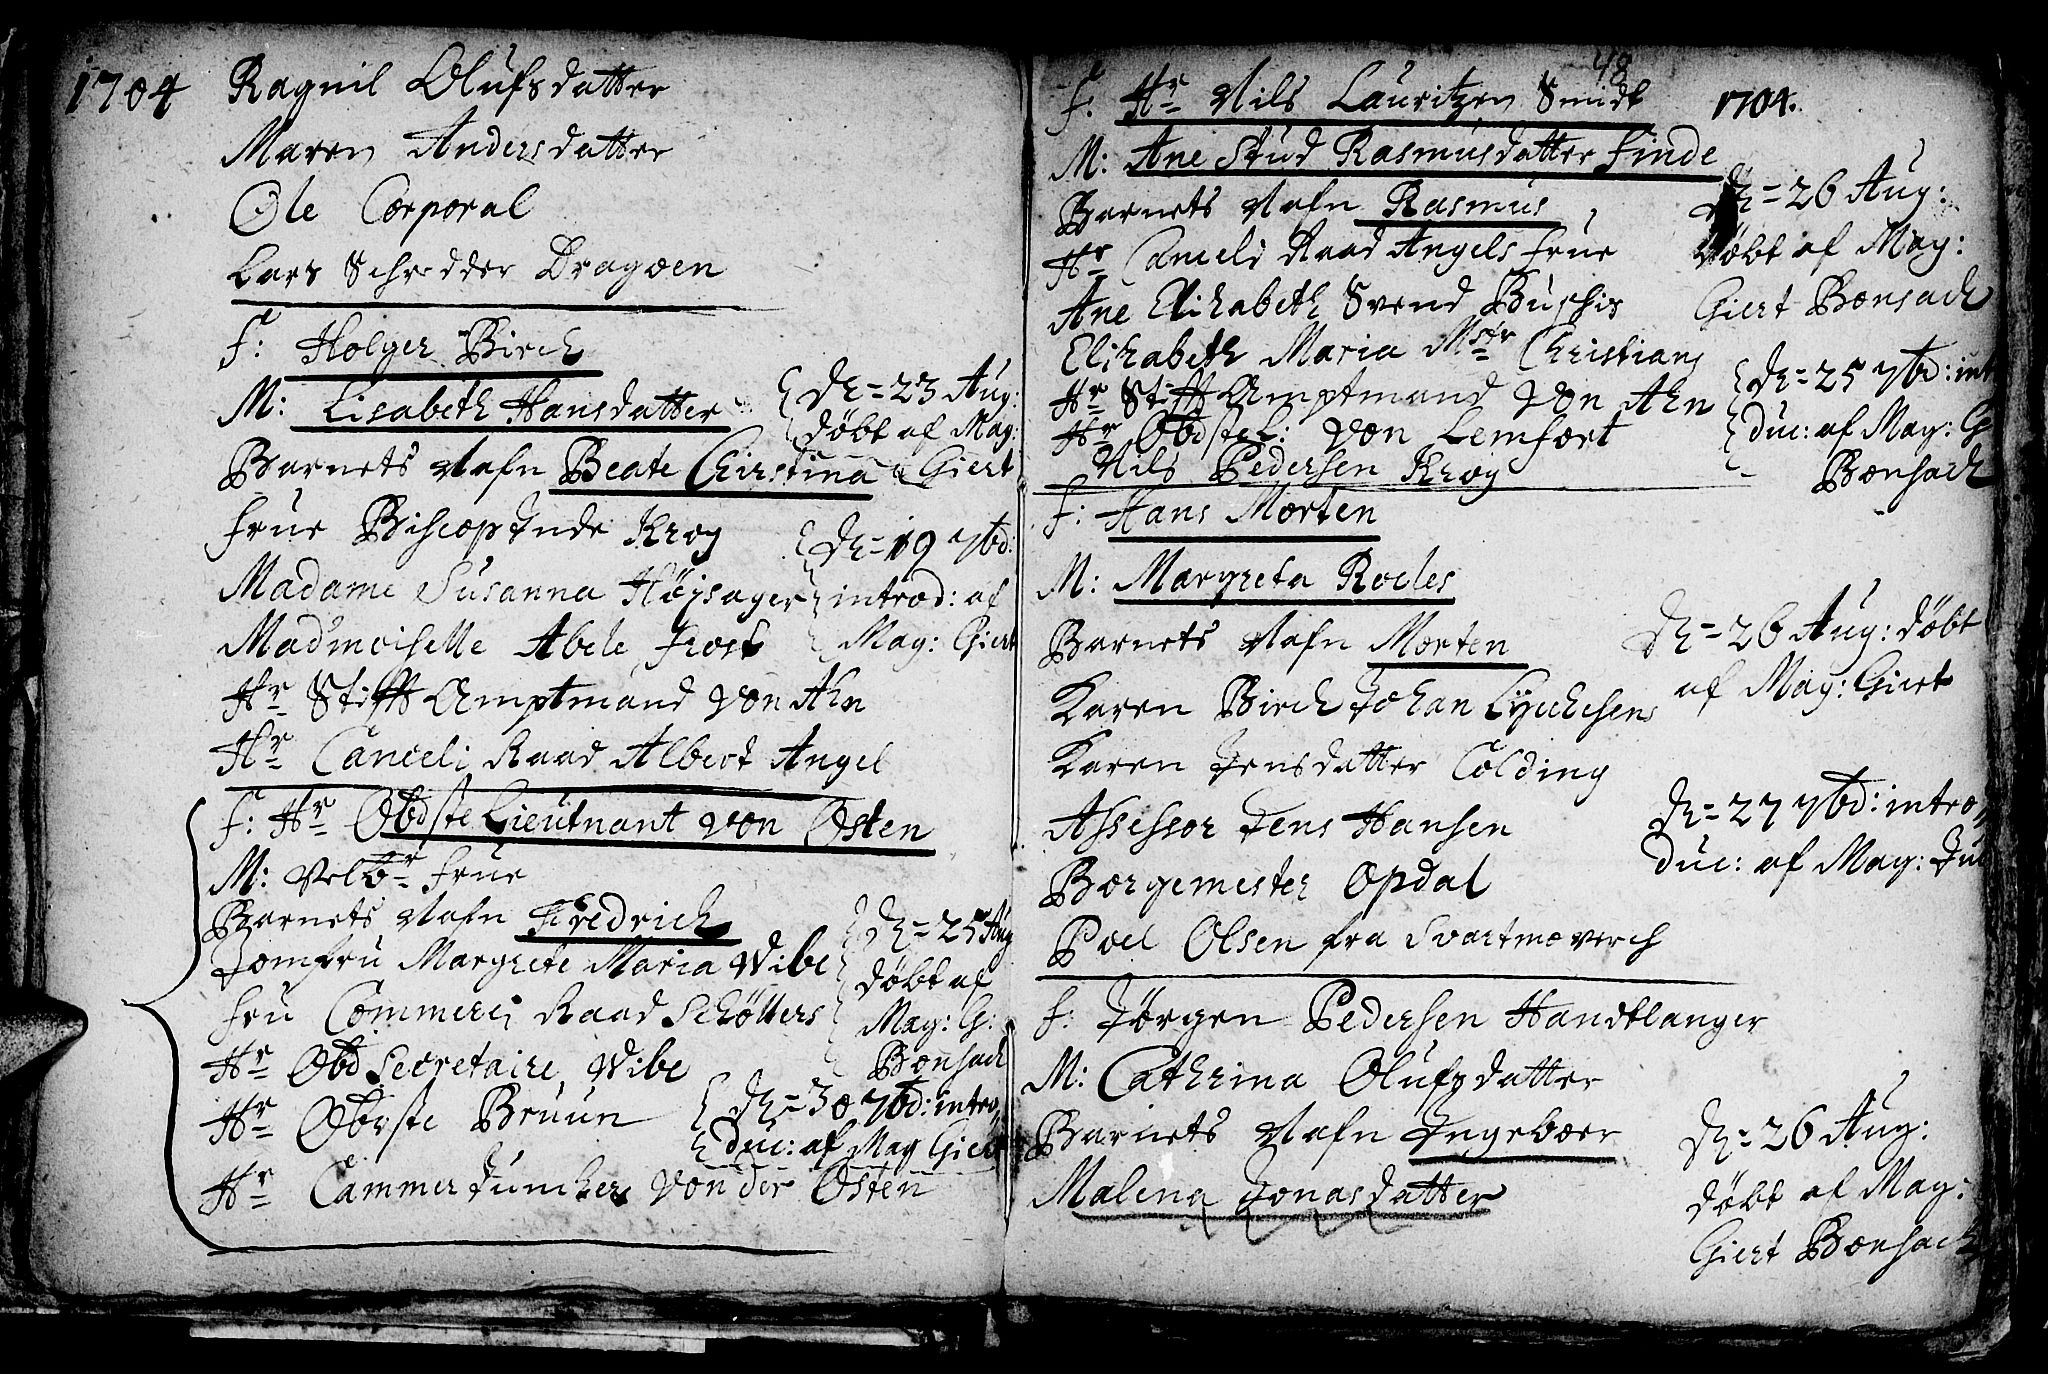 1704
Ragnil Olufsdatter
Maren Andersdatter
Ole Corporal
Lars Schredder Dragoen
F: Holger Birch
M: Lisabeth Hansdatter
Barnets Nafn Beate Chirstina
Frue Biscopinde Krog
Madame Susanna Højsager
Mad'moiselle Abele Frost
Hr Stifft Amptmand von Ahn
Hr Canceli Raad Albert Angel
D= 23 Aug:
døbt af Mag:
Giert
D= 19 7bd:
introd: af
Mag: Giert
F: Hr Obdste Lieutnant von Osten
M: Velbr Frue
Barnets Nafn Fredrich
Jomfru Margrete Maria Wibe
Fru Commerci Raad Schøllers
Hr Obd Secretaire Wibe
Hr Oberste Bruun
Hr Cammer Juncker von der Osten
D= 25 Aug
døbt af
Mag: G:
Bonsach
D= 30 7bd: intro
duc: af Mag Giert
48
1704.
F: Hr Nils Lauritzen Smidt
M: Ane Stud Rasmusdatter Finde
Barnets Nafn Rasmus
Hr Canceli Raad Angels Frue
Ane Elisabeth Svend Buschis
Elisabeth Maria Mstr Christians
Hr Stifft Amptmand von Ahn
Hr Obdste L: von Lemfort
Nils Pedersen Krog
D= 26 Aug:
døbt af Mag:
Giert Bonsach
D= 25 7bd: int
duc: af Mag: G
Bonsach
F: Hans Morten
M: Margreta Rocles
Barnets Nafn Morten
Karen Birch Johan Lyckesens
Karen Jensdatter Colding
Assessor Jens Hansen
Borgemester Opdal
Poel Olsen fra Svartmoverch
D= 26 Aug: døbt
af Mag: Giert
D= 27 7bd: intro
duc: af Mag: Jul
F: Jørgen Pedersen Handtlanger
M: Cathrina Olufsdatter
Barnets Nafn Ingeboer
Malena Jonasdatter
D= 26 Aug:
døbt af Mag:
Giert Bonsach